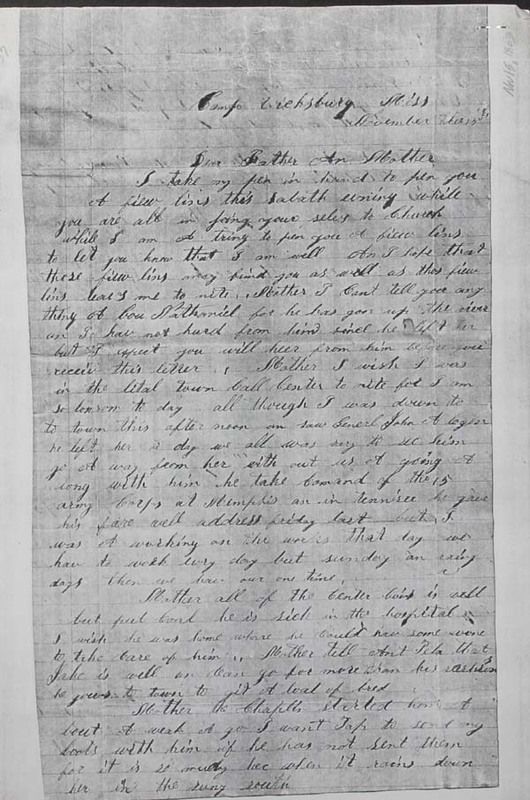 Camp Vicksburg Miss
November the 15
Dear Father An Mother
I take my pen in hand to pen you
A fiew lins this Sabath evning while
you are all in your selvs to Church
while I am A tring to pen you A fiew lins
to let you know that I am well An I hope that
these fiew lins may find you as well as this fiew
lins leavs me to rite. Mother I Cant tell you any
thing A bou Nathaniel for he has gon up the river
an I hav not hurd from him since he left her
but I expect you will heer from him before you
receiv this letter. Mother I wish I was
in the lital town Call Center to nite for I am
so lonsom to day all though I was down to
to town this after noon an saw Generl John A Logan
he left her to day we all was sory to see him
go A way from her with out us A going A
long with him he take Comand of the 15
army Corps at Memphis an in tennisee he gave
his fare well address friday last but I
was A working on the works that day we
hav to work evry day but sunday an rainy
days then we hav our one time.
Mother all of the Center bois is well
but he is sick in the hospital
I wish he was home where he Could hav some wone
to take Care of him. Mother tell Ant that
Jake is well an Can go for more than his
he gows to town to git A loaf of bred
Mother Chaplls started hom A
bout A week A go I want to send my
boots with him if he has not sent them
for it is so mudy hee when it rains down
her in the suny south